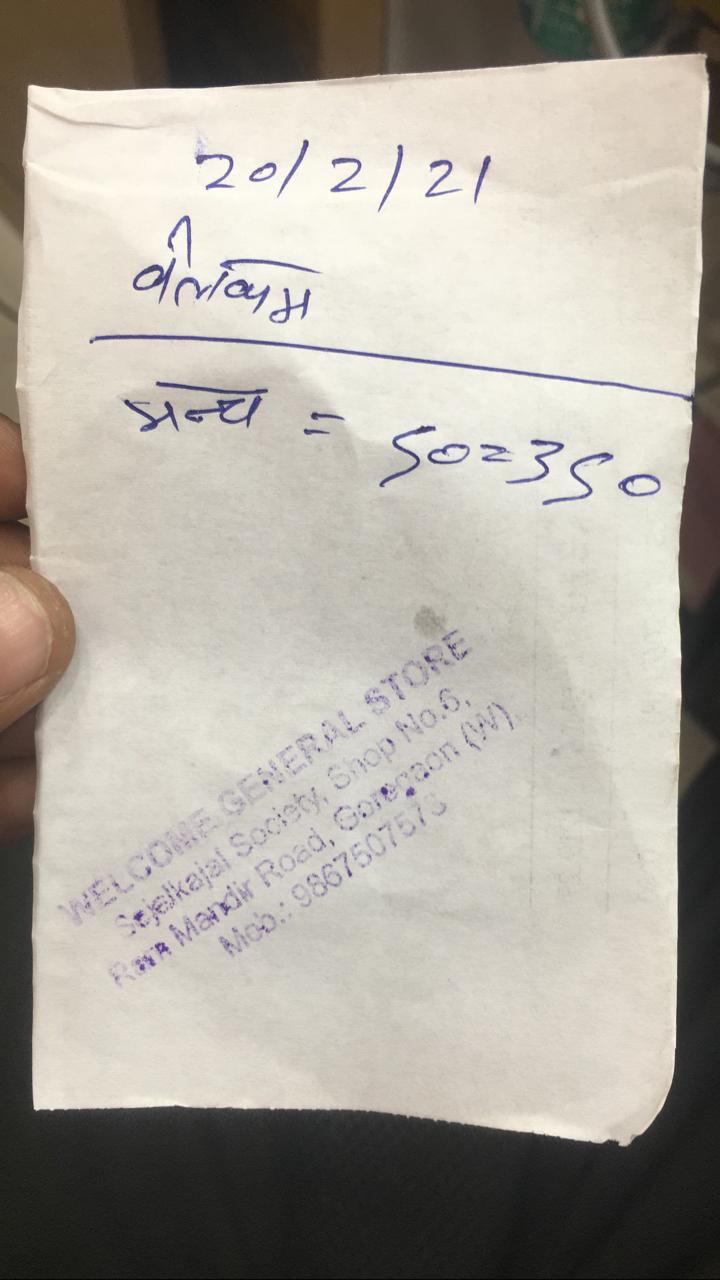 20/2/21
= 50=350
WELCOME GENERAL STORE
Sejelkajal Society, Shop No.6,
Ram Mandir Road, Goregaon (W).
Mob.: 9867507573